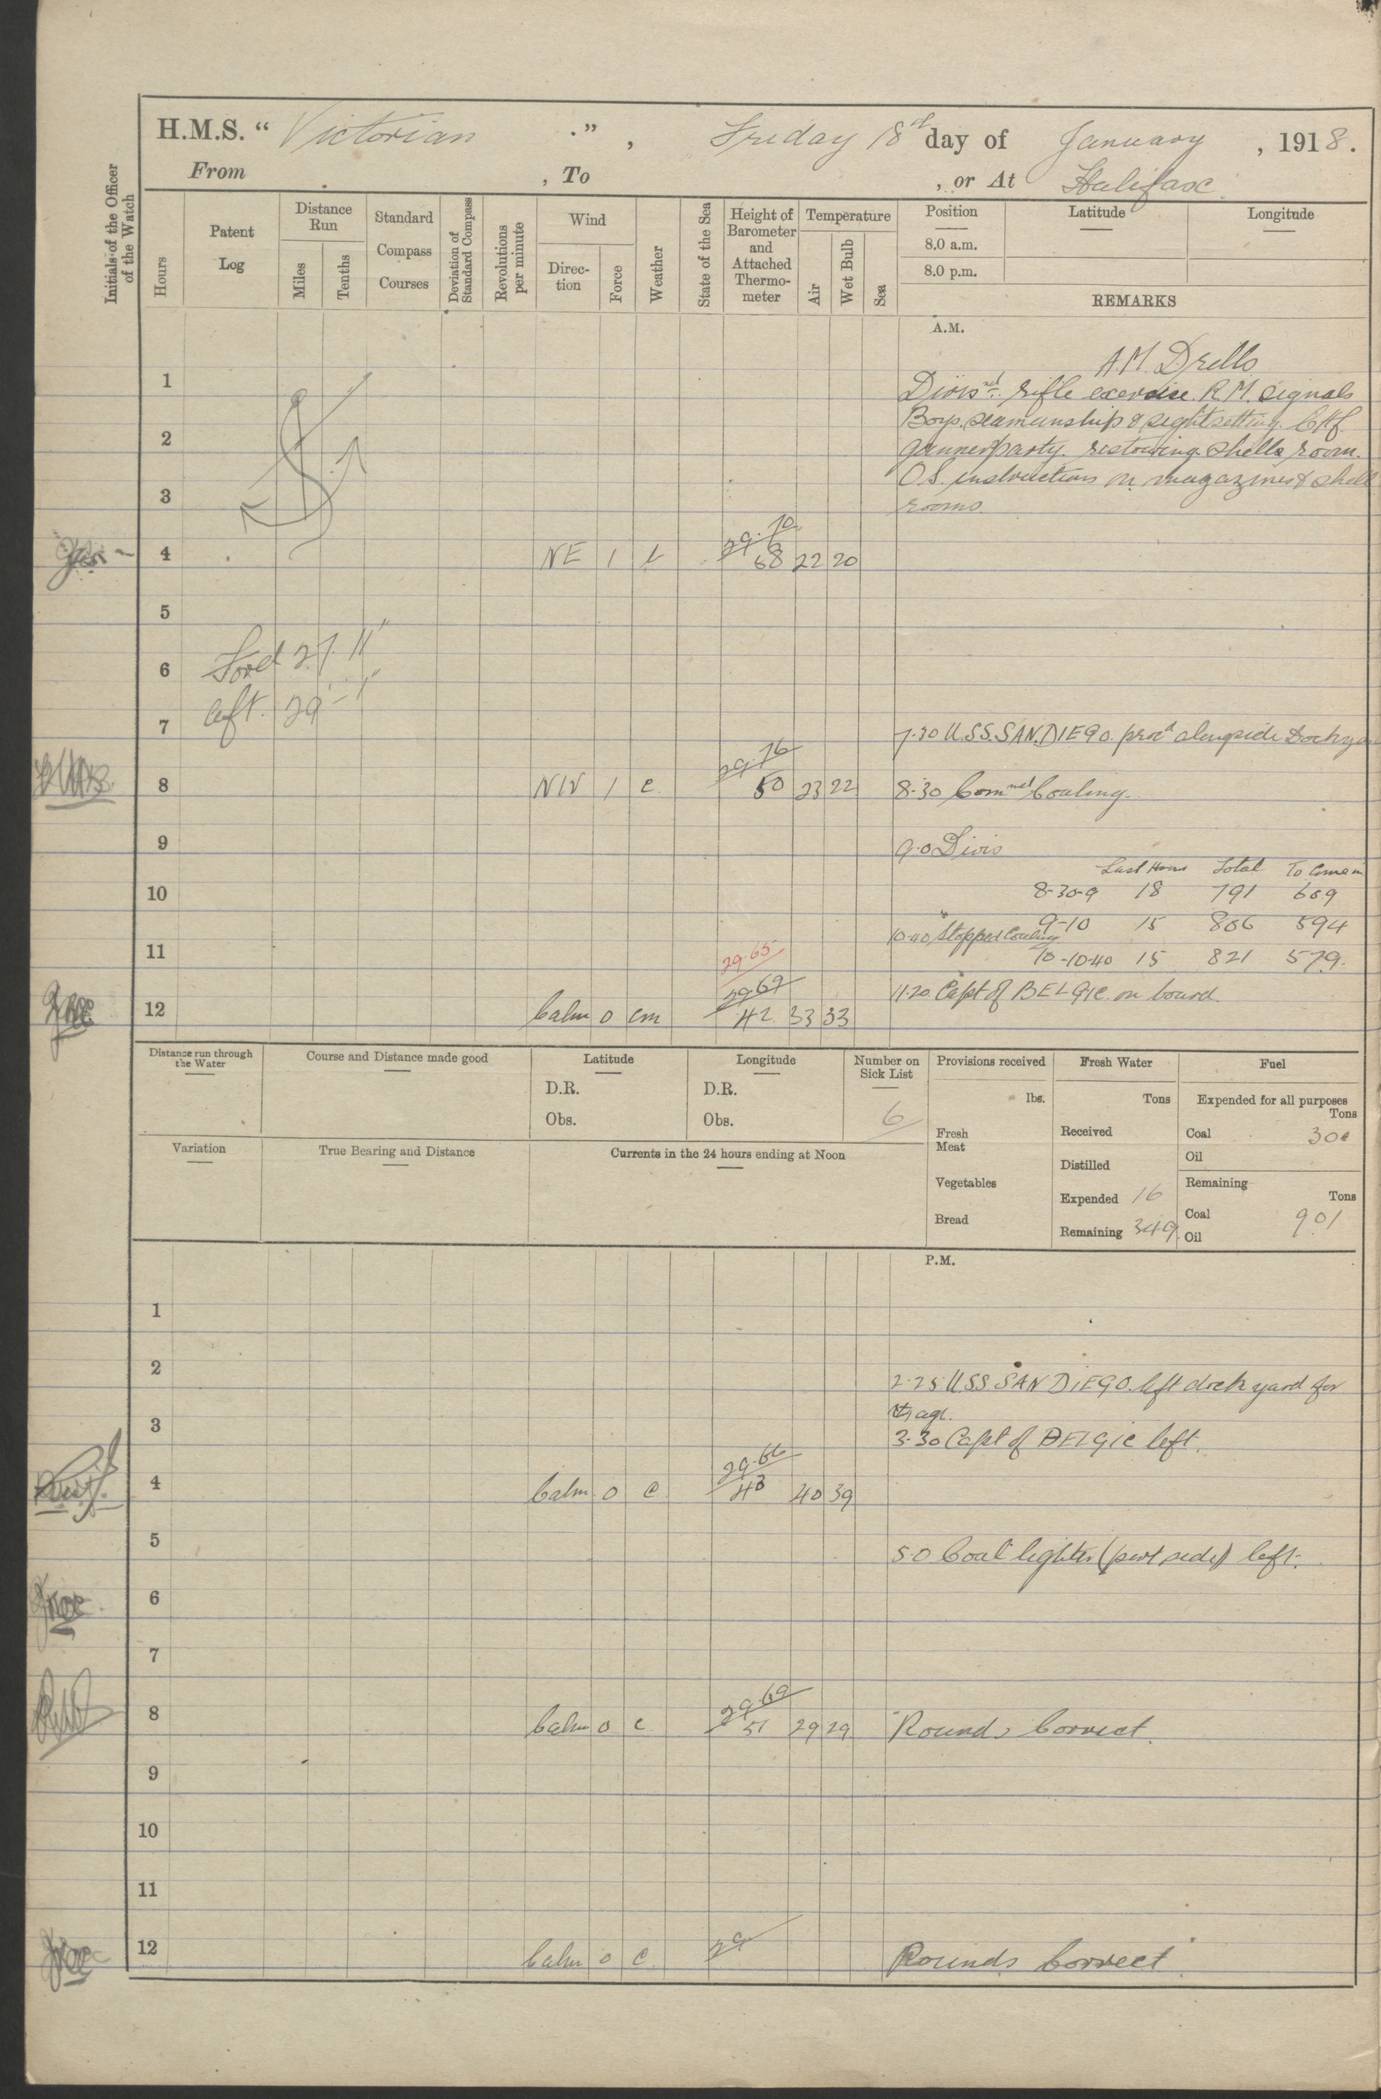 H.M.S. “ Victorian .” , Friday 18th day of January , 1918.
From , To , or At Halifax
Initials of the Officer of the Watch
Hours
Patent Log
Distance Run
Miles
Tenths
Standard Compass Courses
Deviation of Standard Compass
Revolutions per minute
Wind
Direction
Force
Weather
State of the Sea
Height of Barometer and Attached Thermometer
Temperature
Air
Wet Bulb
Sea
Position Latitude Longitude
8.0 a.m.
8.0 p.m.
REMARKS
A.M.
A.M. Drills
1 Divisnl. rifle exercise. R.M. signals
Boys. seamanship & sightsetting. Chf.
2 gunners party. restowing shells room.
O.S. instructions on magazines & shell
3 rooms.
4 NE 1 29.70 68 22 20
5
6 Ford 27 11"
aft. 29' - 1"
7 7.30 U.S.S. SAN DIEGO. procd alongside Dockyard
8 NW 1 c 29.76 50 23 22 8.30 Commned Coaling.
9 9.0 Divis
Last Hour Total To Come in
10 8-30-9 18 791 609
9-10 15 806 594
10.40 Stopped Coaling
11 29.65 10-10.40 15 821 579.
11.20 Capt of BELGIC on board.
12 Calm 0 cm 29.69 42 33 33
Distance run through the Water
Course and Distance made good
Latitude
D.R.
Obs.
Longitude
D.R.
Obs.
Number on Sick List
6
Provisions received
lbs.
Fresh Meat
Vegetables
Bread
Fresh Water
Tons
Received
Distilled
Expended 16
Remaining 349
Fuel
Expended for all purposes
Tons
Coal 30
Oil
Remaining
Tons
Coal 901
Oil
Variation
True Bearing and Distance
Currents in the 24 hours ending at Noon
P.M.
1
2 2.25 USS SAN DIEGO. left dockyard for
3 3.30 Capt of BELGIC left
4 Calm 0 c 29.66 43 40 39
5 5.0 Coal lighter (port side) left.
6
7
8 Calm 0 c 29.69 51 29 29 Rounds Correct.
9
10
11
12 Calm 0 c 29 Rounds Correct